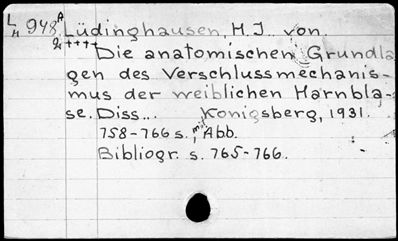 L 948, A Lüdinghausen, H.J. von.
4 2 ++++
Die anatomischen Grundla
gen des Verschlussmechanis-
mus der weiblichen Harnbla-
se. Diss... Konigsberg, 1931.
758-766 s., mit Abb.
Bibliogr. s. 765-766.